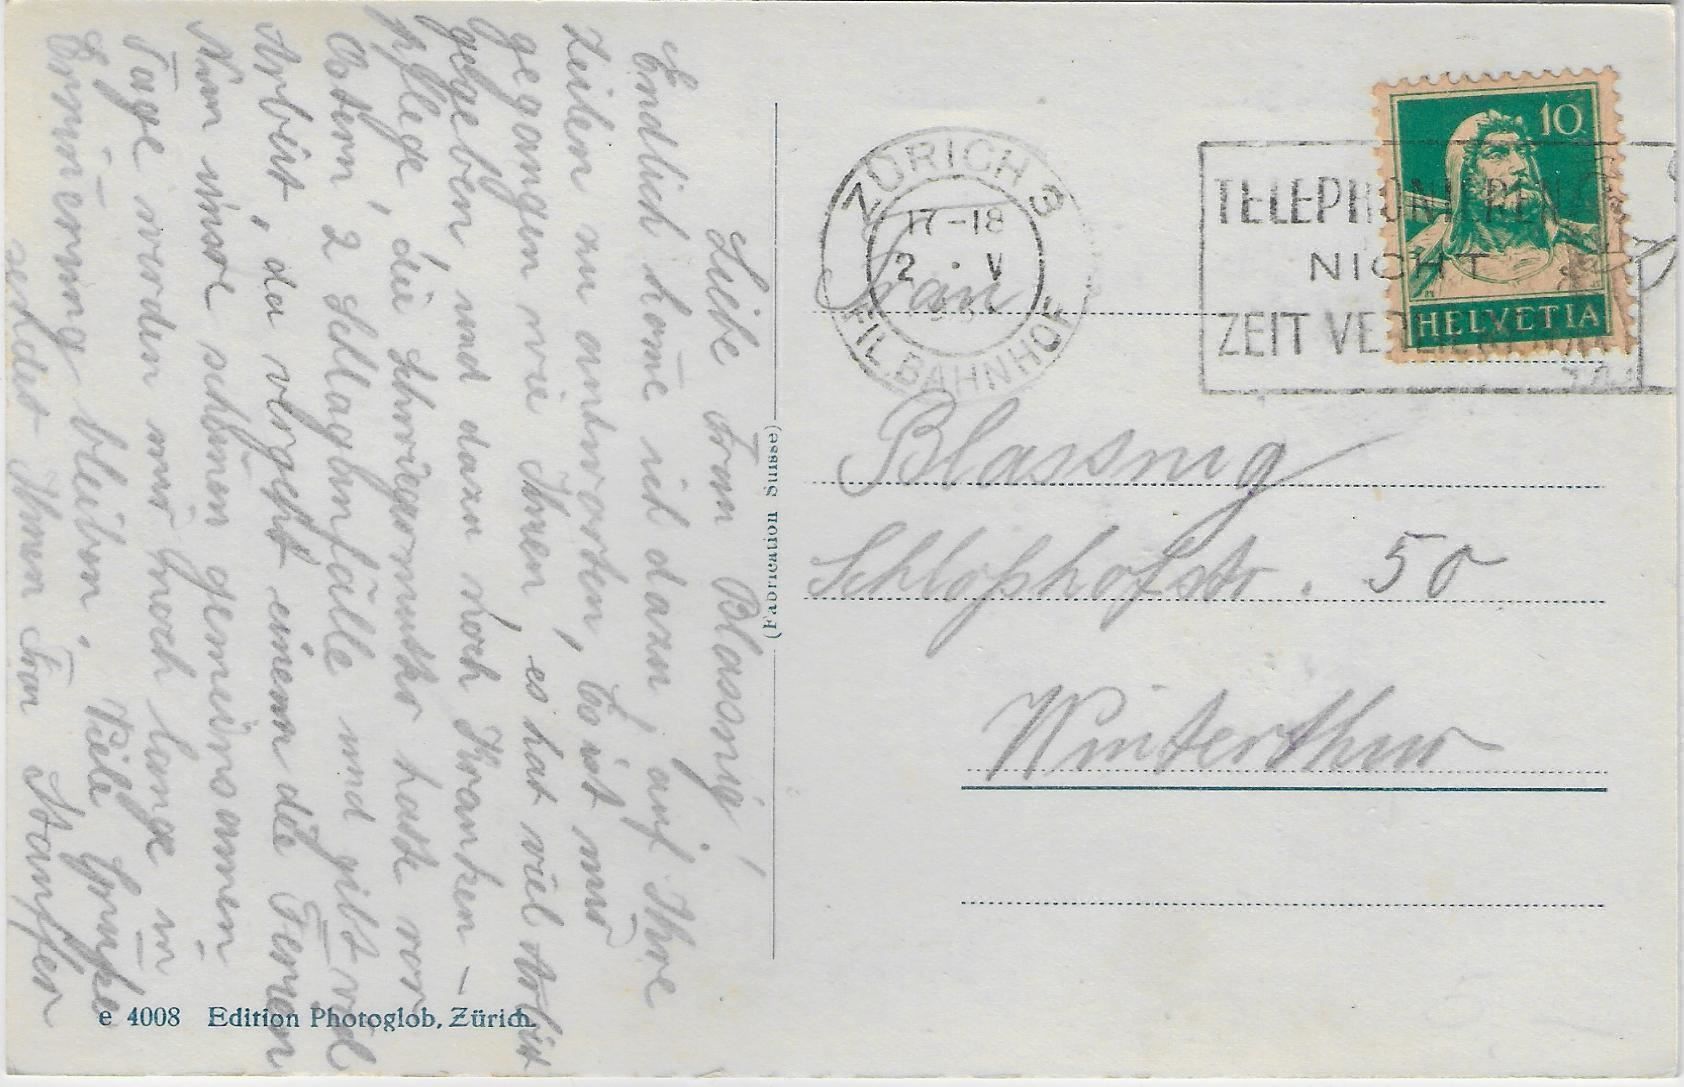 Liebe Frau Blassnig!
Endlich kome ich dazu, auf Ihre
Zeilen zu antworten, Es ist mir
gegangen wie Ihnen, es hat viel Arbeit
gegeben, und dazu noch Kranken-
pflege, die Schwiegermutter hatte vor
Ostern 2 Schlaganfälle und gibt viel
Arbeit, da vergeht einem die Ferien
Nun unsre schönen gemeinsamen
Tage werden mir noch lange in
Erinnerung bleiben. Viele Grüße
sendet Ihnen Frau Stauffer
e 4008 Edition Photoglob, Zürich.
(Fabrication Suisse)
ZÜRICH 3
17-18
2 · V
FIL. BAHNHOF
TELEPHONIEREN
NICHT
ZEIT VERLIEREN
10
HELVETIA
Frau
Blassnig
Schloßhofstr. 50
Winterthur